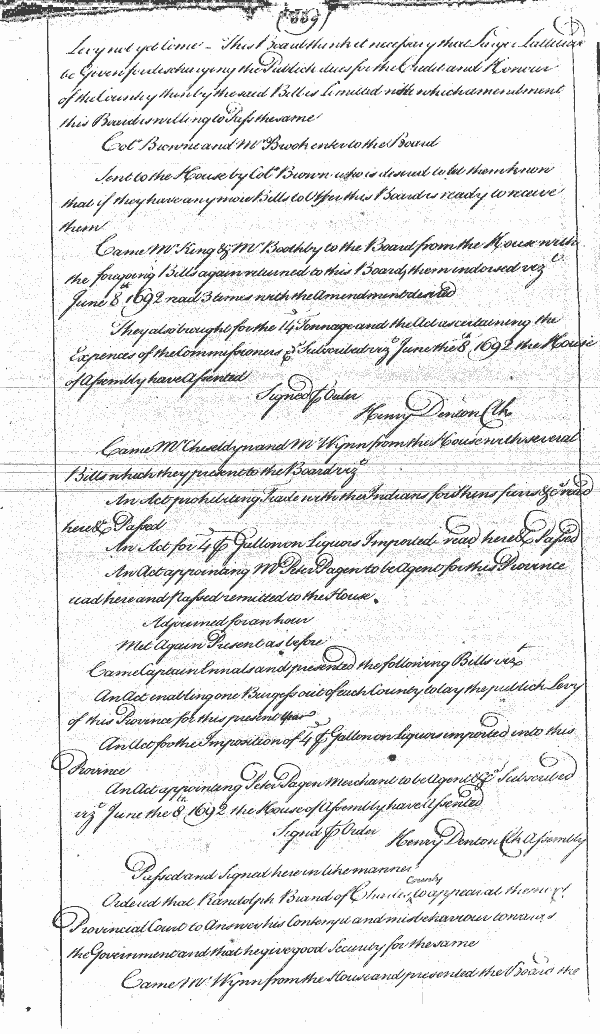 (332)
Levy not yet Come - This Board think it necessary that Larger Lattitude
be Given for discharging the Publick dues for the Credit and Honour
of the Country then by the said Bill is Limitted with which amendment
this Board is willing to Pass the same
Colo Browne and Mr Brook enter to the Board
Sent to the House by Colo Brown who is desired to let them know
that if they have any more Bills to Offer this Board is ready to receive
them
Came Mr King & Mr Boothby to the Board from the House with
the foregoing Bills again returned to this Board them indorsed vizt
June 8th 1692 read 3 times with the Amendment desired
They also brought for the 14d Tonnage and the Act ascertaining the
Expences of the Commissioners &c Subscribed vizt June the 8th 1692 the House
of Assembly have Assented
Signed p Order
Henry Denton Clk
Came Mr Cheseldyn and Mr Wynn from the House with several
Bills which they present to the Board vizt
An Act prohibiting Trade with the Indians for Skins furrs &ca read
here & Passed
An Act for 4d p Gallon on Liquors Imported read here & Passed
An Act appointing Mr Peter Pagen to be Agent for this Province
read here and Passed remitted to the House.
Adjourned for an hour
Met Again Present as before
Came Captain Ennals and presented the following Bills vizt
An Act enabling one Burgess out of each County to lay the publick Levy
of this Province for this present Year
An Act for the Imposition of 4d p Gallon on Liquors imported into this
Province
An Act appointing Peter Pagen Merchant to be Agent &ca Subscribed
vizt June the 8th 1692 the House of Assembly have Assented
Signd p Order
Henry Denton Clk Assembly
Passed and Signed here in like manner
Ordered that Randolph Brand of Charles County to appear at the next
Provincial Court to Answer his Contempt and misbehaviour towards
the Government and that he give good Security for the same
Came Mr Wynn from the House and presented the Board the